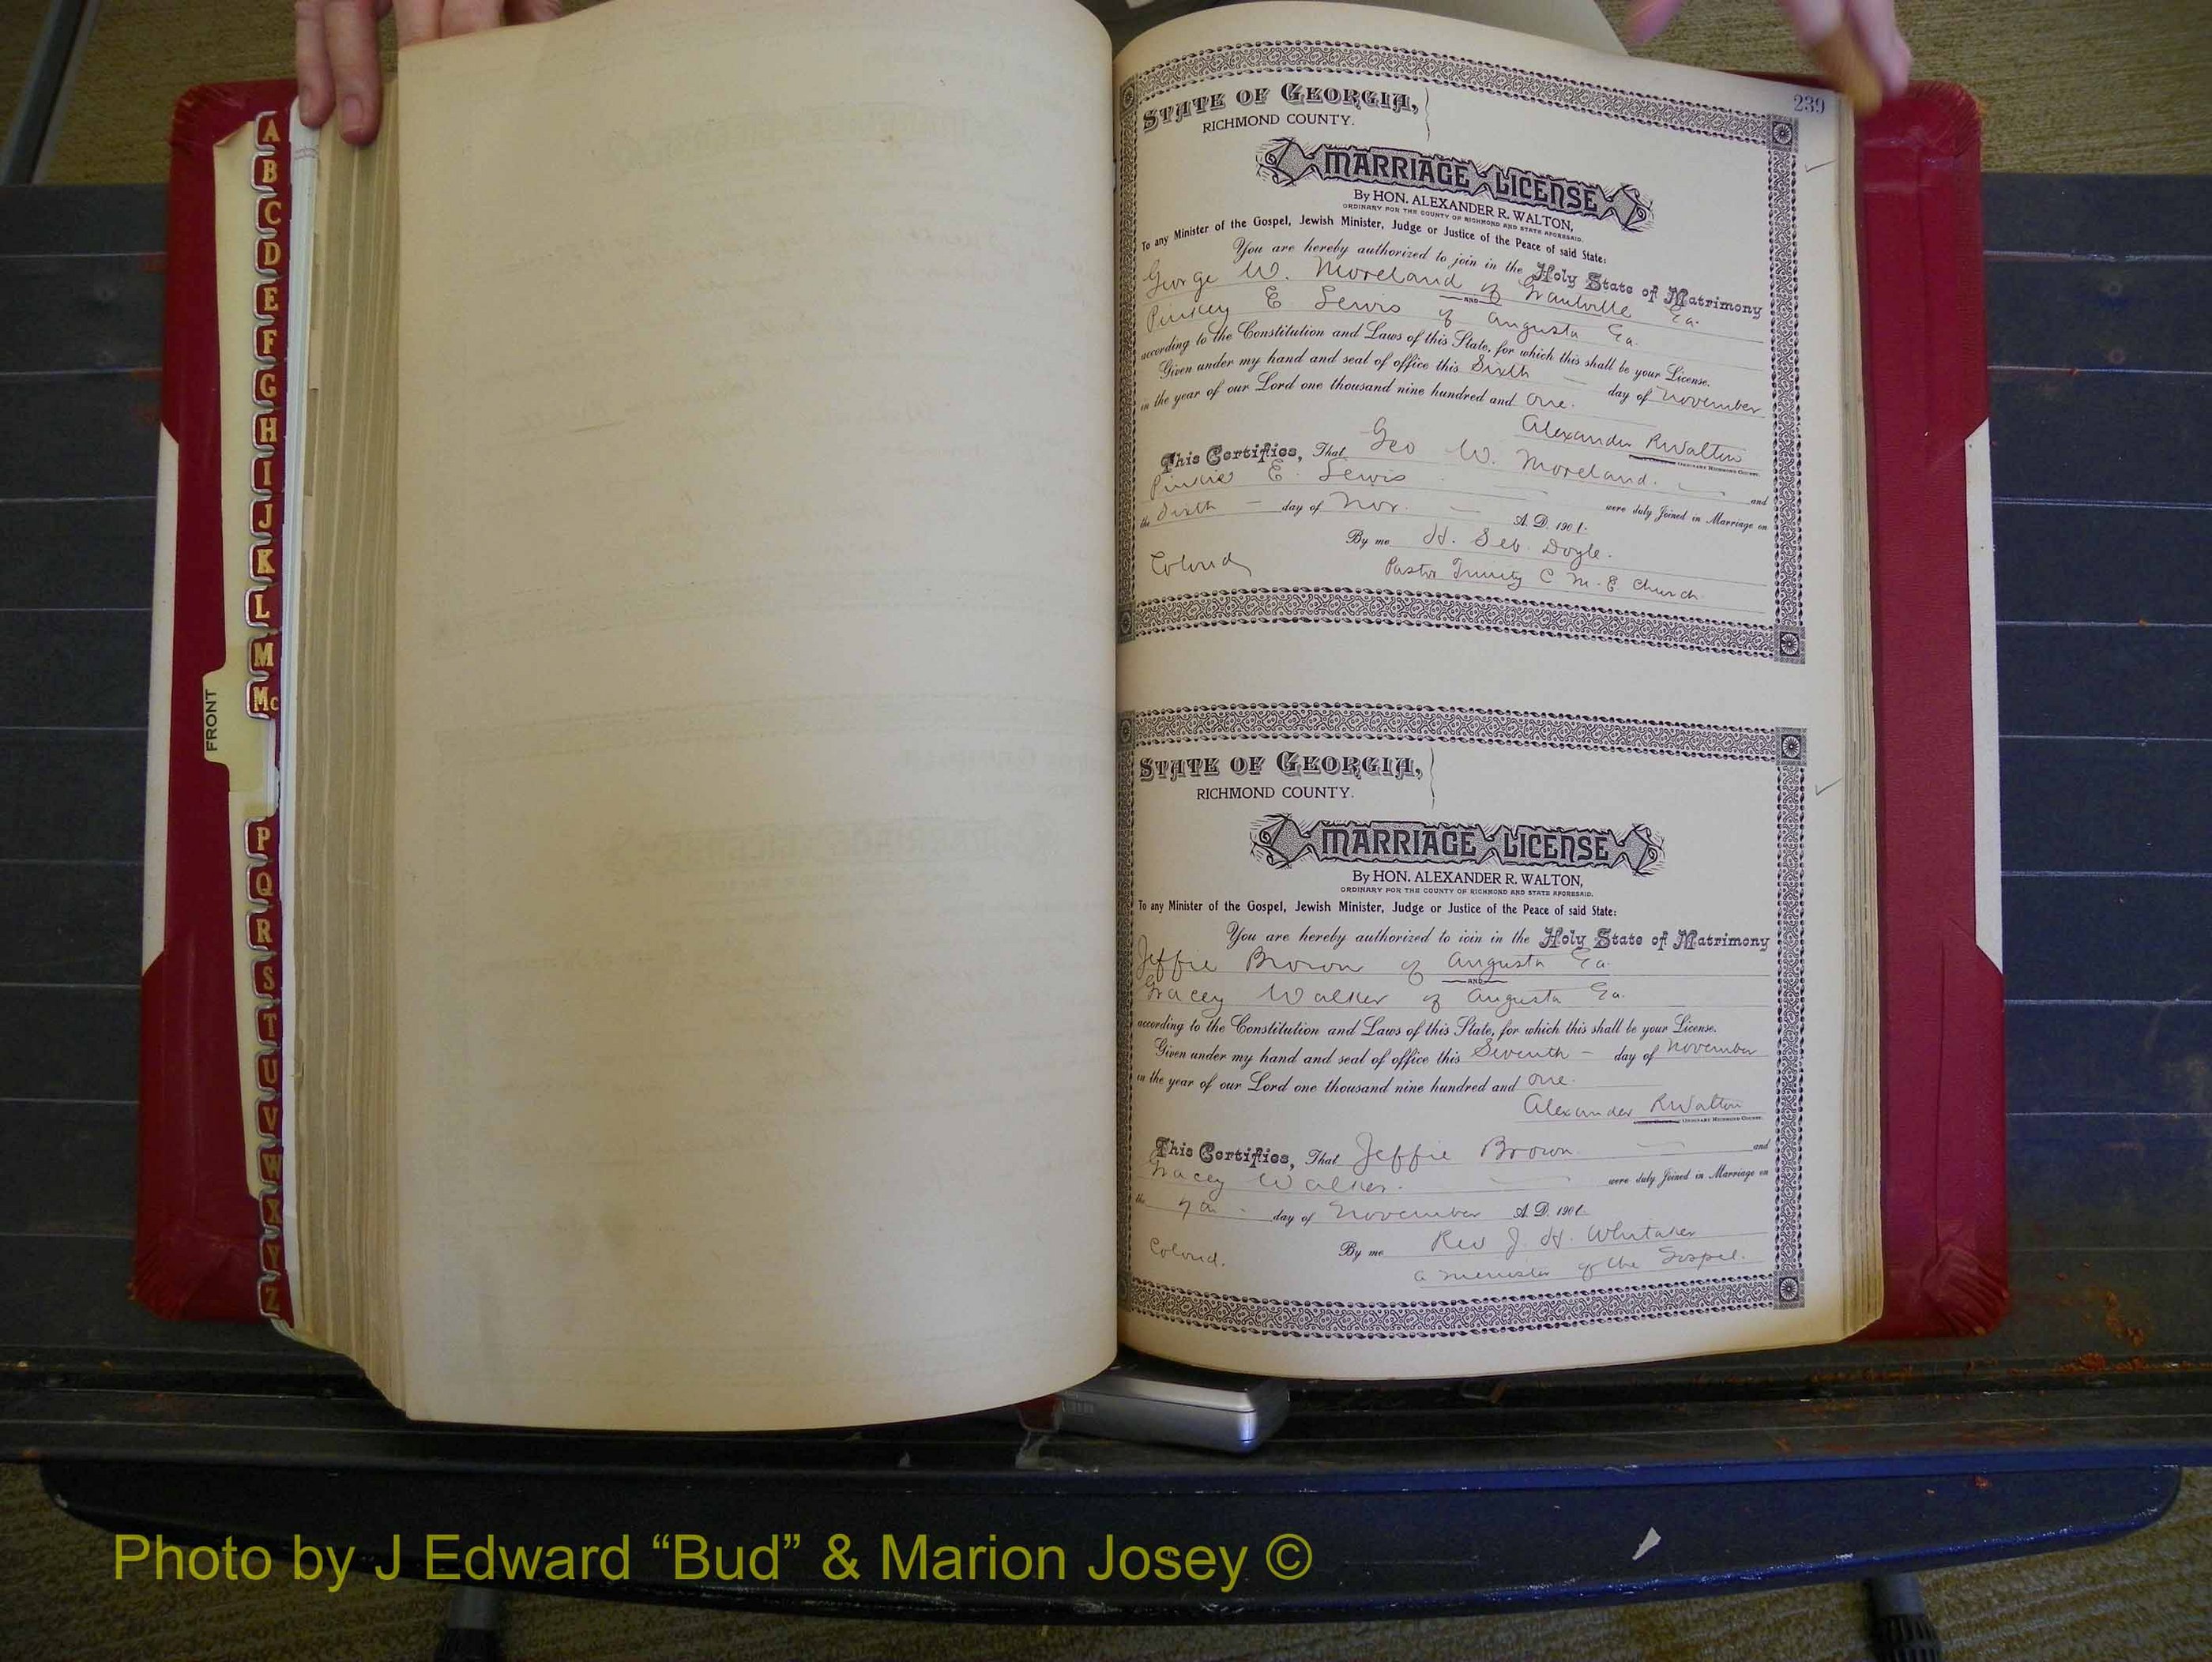 A
B
C
D
E
F
G
H
I
J
K
L
M
Mc
FRONT
P
Q
R
S
T
U
V
W
X
Y
Z
239
STATE OF GEORGIA,
RICHMOND COUNTY.
MARRIAGE LICENSE
By HON. ALEXANDER R. WALTON,
ORDINARY FOR THE COUNTY OF RICHMOND AND STATE AFORESAID.
To any Minister of the Gospel, Jewish Minister, Judge or Justice of the Peace of said State:
You are hereby authorized to join in the Holy State of Matrimony
George W. Moreland of Grantville Ga.
AND
Pinkey E Lewis of Augusta Ga.
according to the Constitution and Laws of this State, for which this shall be your License.
Given under my hand and seal of office this Sixth day of November
in the year of our Lord one thousand nine hundred and One.
Alexander R Walton
ORDINARY RICHMOND COUNTY.
This Certifies, That Geo W. Moreland. and
Pinkie E. Lewis were duly Joined in Marriage on
the Sixth day of Nov. A. D. 1901.
By me H. Seb. Doyle.
Colored Pastor Trinity C M. E Church
STATE OF GEORGIA,
RICHMOND COUNTY.
MARRIAGE LICENSE
By HON. ALEXANDER R. WALTON,
ORDINARY FOR THE COUNTY OF RICHMOND AND STATE AFORESAID.
To any Minister of the Gospel, Jewish Minister, Judge or Justice of the Peace of said State:
You are hereby authorized to join in the Holy State of Matrimony
Jeffie Brown of Augusta Ga.
AND
Gracey Walker of Augusta Ga.
according to the Constitution and Laws of this State, for which this shall be your License.
Given under my hand and seal of office this Seventh day of November
in the year of our Lord one thousand nine hundred and One.
Alexander R Walton
ORDINARY RICHMOND COUNTY.
This Certifies, That Jeffie Brown and
Gracey Walker. were duly Joined in Marriage on
the 7th day of November A. D. 1901.
By me Rev J. H. Whitaker
Colored. a minister of the Gospel.
Photo by J Edward “Bud” & Marion Josey ©